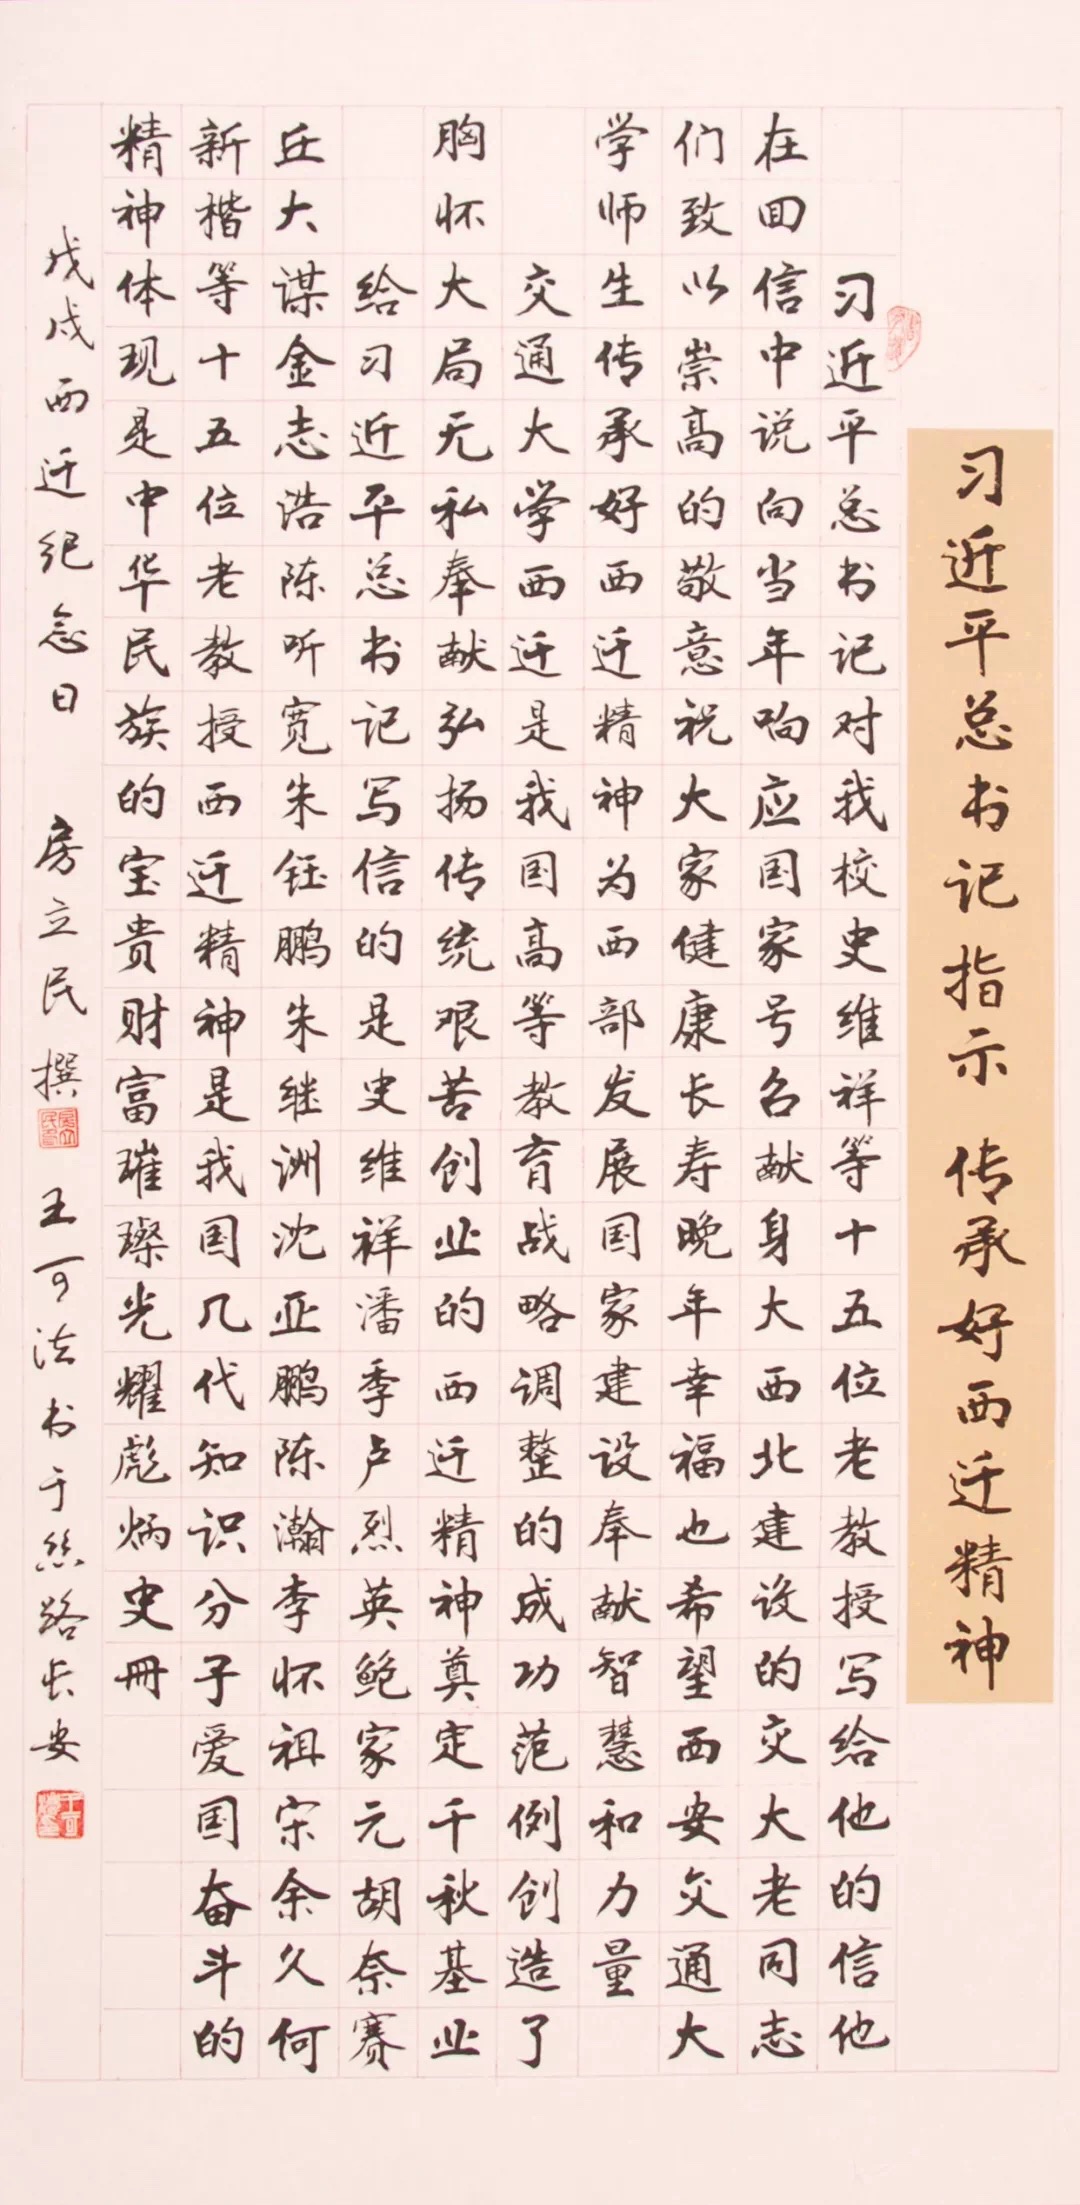 习近平总书记指示 传承好西迁精神
习近平总书记对我校史维祥等十五位老教授写给他的信他
在回信中说向当年响应国家号召献身大西北建设的交大老同志
们致以崇高的敬意祝大家健康长寿晚年幸福也希望西安交通大
学师生传承好西迁精神为西部发展国家建设奉献智慧和力量
交通大学西迁是我国高等教育战略调整的成功范例创造了
胸怀大局无私奉献弘扬传统艰苦创业的西迁精神奠定千秋基业
给习近平总书记写信的是史维祥潘季卢烈英鲍家元胡奈赛
丘大谋金志浩陈听宽朱钰鹏朱继洲沈亚鹏陈瀚李怀祖宋余久何
新楷等十五位老教授西迁精神是我国几代知识分子爱国奋斗的
精神体现是中华民族的宝贵财富璀璨光耀彪炳史册
戊戌西迁纪念日 房立民撰 王可法书于丝路长安